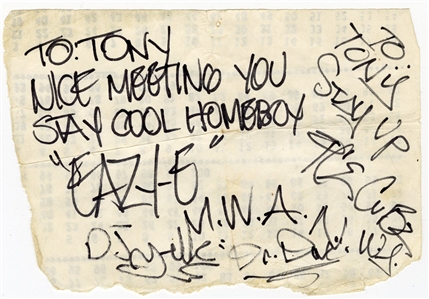 TO: TONY
NICE MEETING YOU
STAY COOL HOMEBOY
"EAZY-E"
N.W.A.
TO:
TONY
STAY UP
ICE CUBE